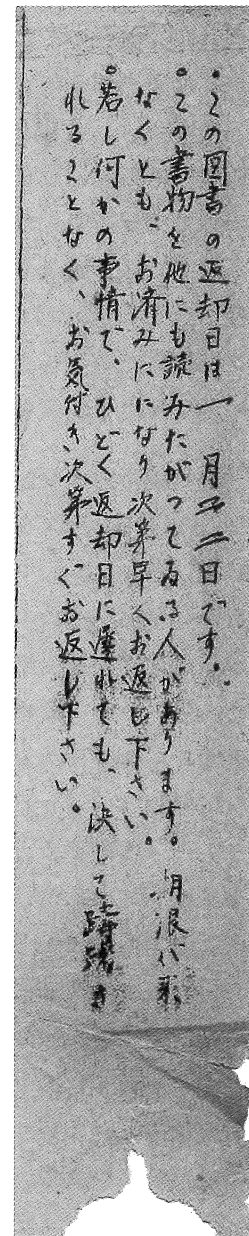 ・この図書の返却日は一月廿二日です。
・この書物を他にも読みたがつてゐる人があります。期限が来
なくとも、お済みにになり次第早くお返し下さい。
・若し何かの事情で、ひどく返却日に遅れても、決して躊躇さ
れることなく、お気付き次第すぐお返し下さい。